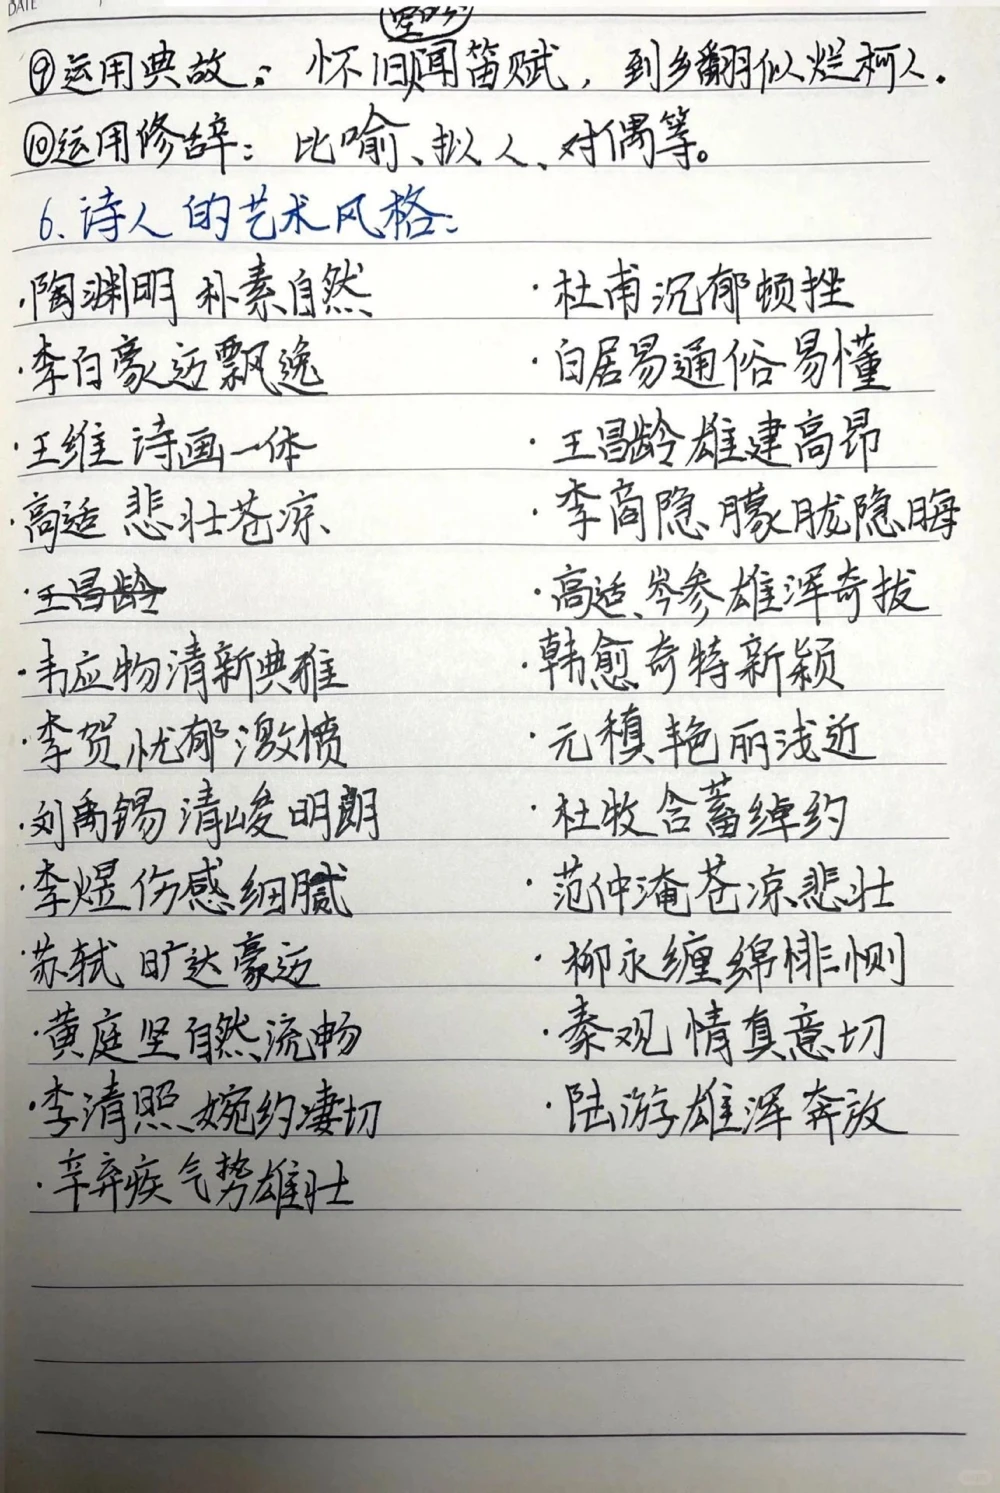 DATE
空吟
⑨运用典故：怀旧闻笛赋，到乡翻似烂柯人.
⑩运用修辞：比喻、拟人、对偶等。
6.诗人的艺术风格：
·陶渊明 朴素自然 ·杜甫沉郁顿挫
·李白豪迈飘逸 ·白居易通俗易懂
·王维 诗画一体 ·王昌龄雄建高昂
·高适 悲壮苍凉 ·李商隐朦胧隐晦
·王昌龄 ·高适、岑参雄浑奇拔
·韦应物清新典雅 ·韩愈奇特新颖
·李贺忧郁激愤 ·元稹艳丽浅近
·刘禹锡 清峻明朗 ·杜牧含蓄绰约
·李煜伤感细腻 ·范仲淹苍凉悲壮
·苏轼 旷达豪迈 ·柳永缠绵悱恻
·黄庭坚自然流畅 ·秦观情真意切
·李清照婉约凄切 ·陆游雄浑奔放
·辛弃疾气势雄壮